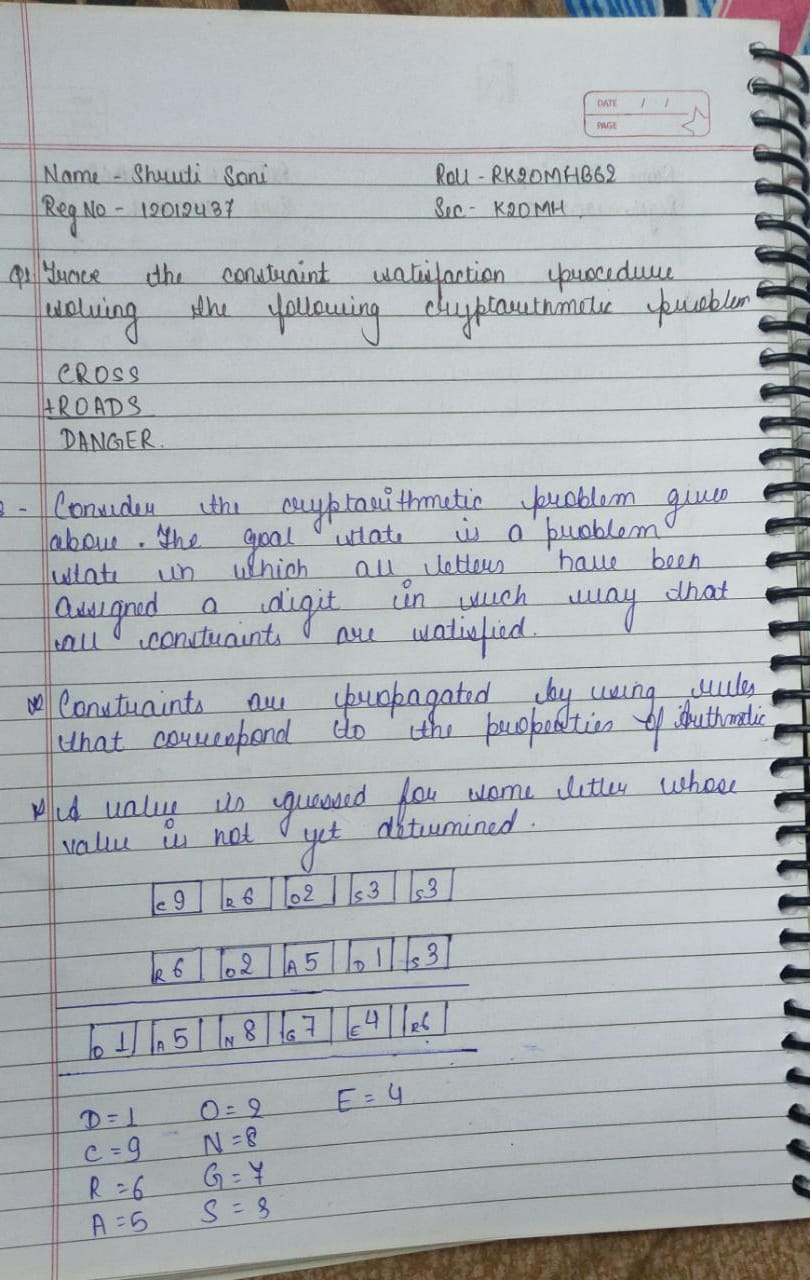 DATE / /
PAGE
Name - Shruti Soni Roll - RK20MHB62
Reg No - 12012437 Sec - K20MH
Q1 Trace the constraint satisfaction procedure
solving the following cryptarithmetic problem
CROSS
+ROADS
DANGER.
- Consider the cryptarithmetic problem given
above. The goal state is a problem
state in which all letters have been
assigned a digit in such way that
all constraints are satisfied.
Constraints are propagated by using rules
that correspond to the properties of Authmatic
A value is guessed for some letter whose
value is not yet determined.
C9 R6 O2 S3 S3
R6 O2 A5 D1 S3
D1 A5 N8 G7 E4 R6
D=1 O=2 E=4
C=9 N=8
R=6 G=7
A=5 S=3